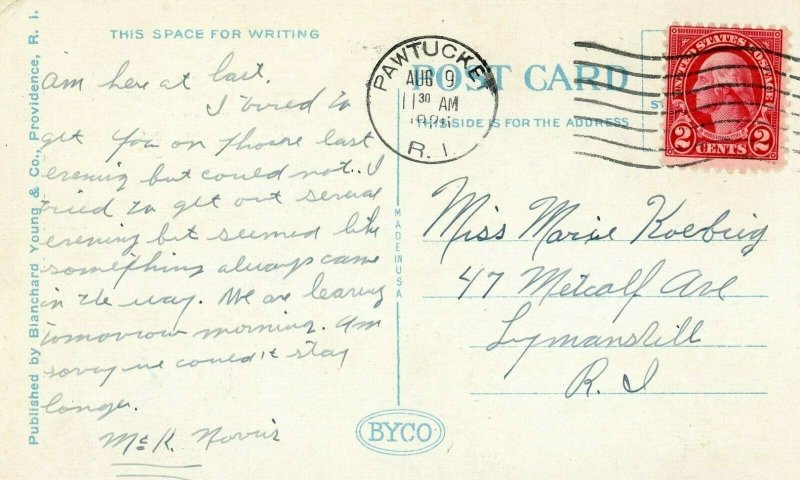 THIS SPACE FOR WRITING
Am here at last.
I tried to
get you on phone last
evening but could not. I
tried to get out several
evening but seemed like
something always came
in the way. We are leaving
tomorrow morning. Am
sorry we could't stay
longer.
McK. Norris
Published by Blanchard Young & Co., Providence, R. I.
MADE IN USA
BYCO
PAWTUCKET
AUG 9
11 30 AM
R. I.
POST CARD
THIS SIDE IS FOR THE ADDRESS
UNITED STATES POSTAGE
2 CENTS 2
Miss Marie Koebig
47 Metcalf Ave
Lymansvill
R. I